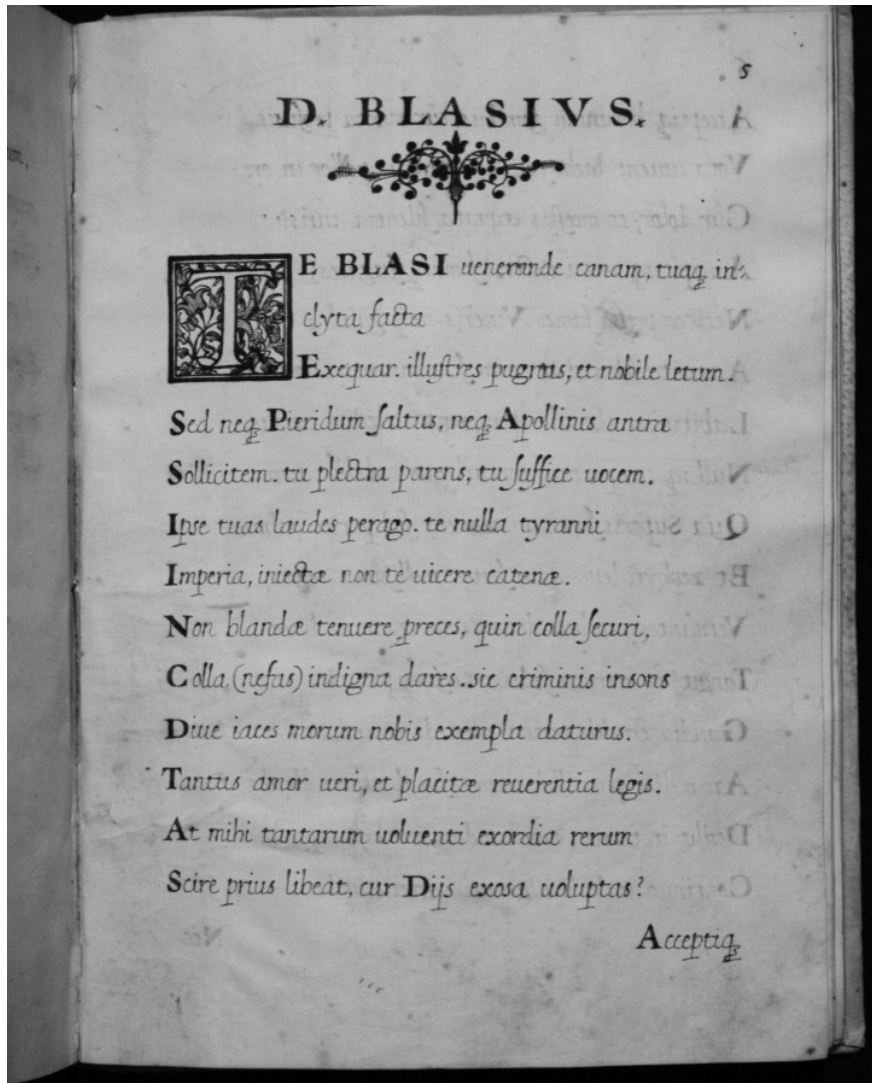 5
D. BLASIVS.
TE BLASI uenerande canam, tuaq; in-
clyta facta
Exequar. illustres pugnas, et nobile letum.
Sed neq; Pieridum saltus, neq; Apollinis antra
Sollicitem. tu plectra parens, tu suffice uocem.
Ipse tuas laudes perago. te nulla tyranni
Imperia, iniectæ non te uicere catenæ.
Non blandæ tenuere preces, quin colla securi,
Colla, (nefas) indigna dares. sic criminis insons
Diue iaces morum nobis exempla daturus.
Tantus amor ueri, et placitæ reuerentia legis.
At mihi tantarum uoluenti exordia rerum
Scire prius libeat, cur Dijs exosa uoluptas?
Acceptiq;